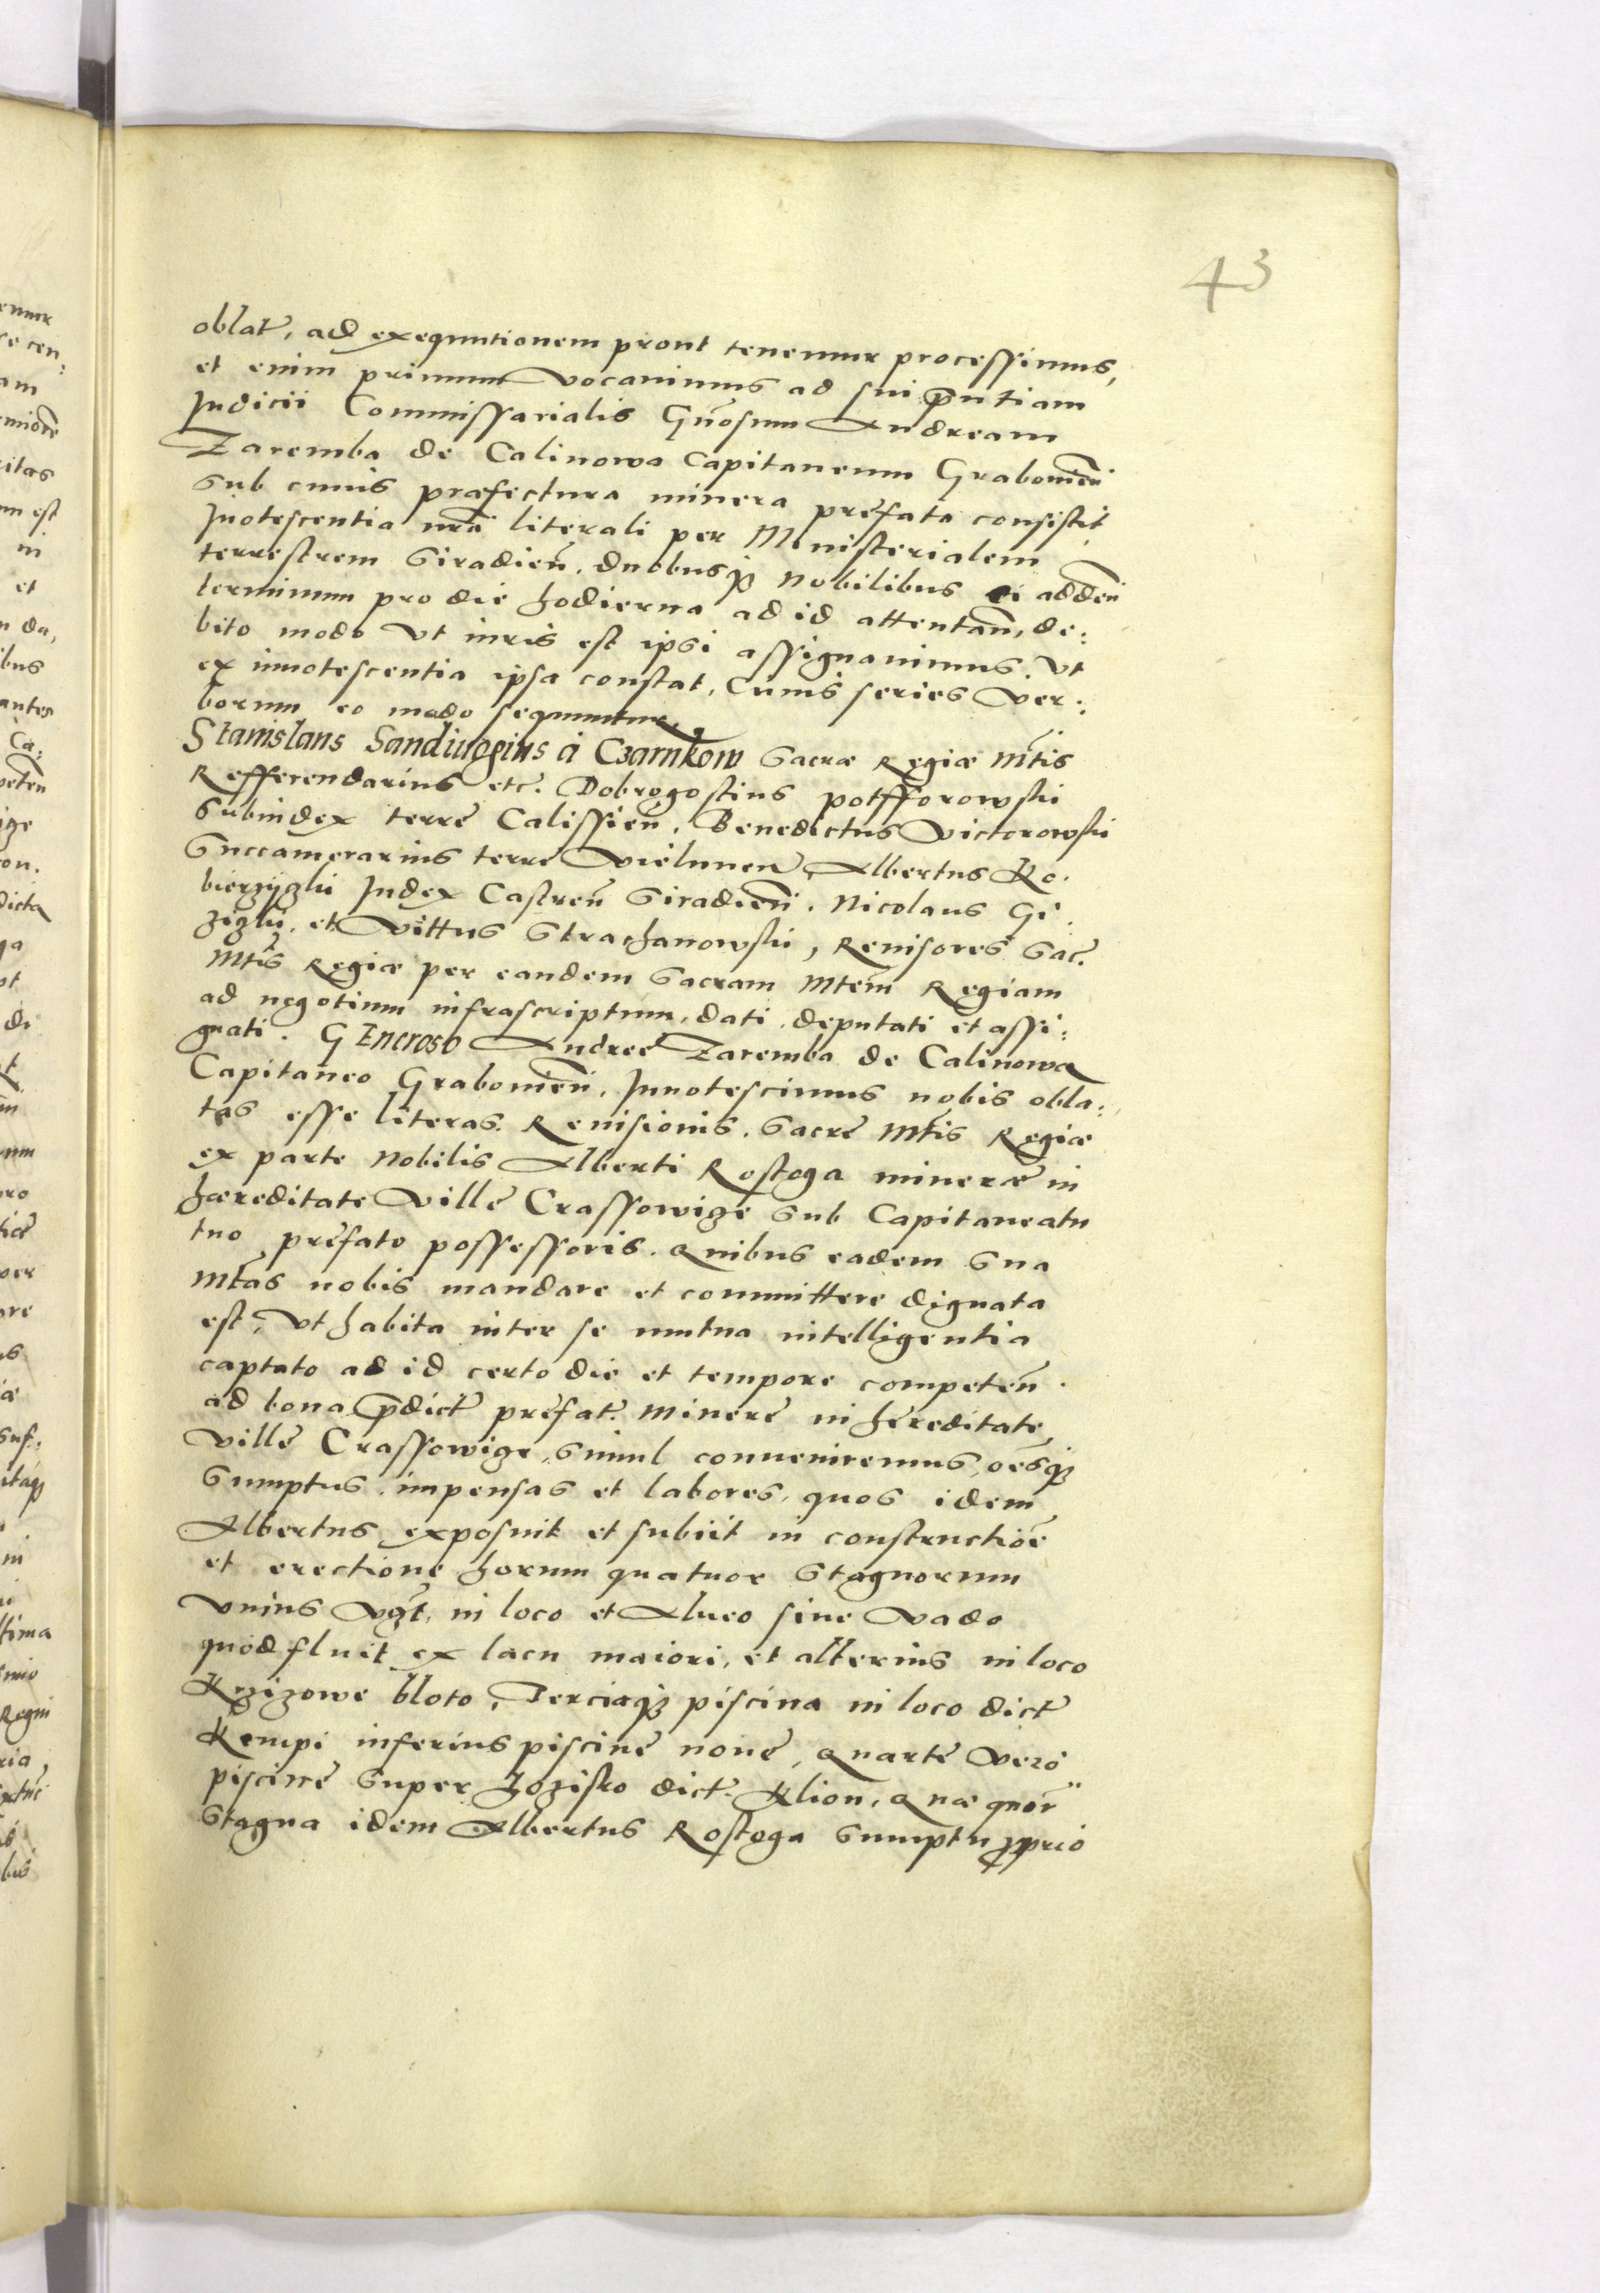 43
oblat̃, ad exequutionem prout tenemur processimus,
et enim primum vocauimus ad sui p̃ntiam
Judicii Commissarialis Gñosum Andream
Zaremba de Calinowa Capitaneum Grabouieñ
Sub cuius præfectura minera prefata consistit
Inotescentia nr̃a literali per Ministerialem
terrestrem Siradieñ. duobusq₃ Nobilibus ei addeñ
terminum pro die hodierna ad id attentañ, de:
bito modo vt iuris est ipsi assignauimus. Vt
ex innotescentia ipsa constat, Cuius series ver:
borum eo modo sequuntur.
Stanislaus Sandiuogius à Czarnkow Sacræ Regiæ Mt̃is
Refferendarius etc̃. Dobrogostius potfforowski
Subiudex terre Calissieñ, Benedictus Victorowski
Succamerarius terre Vieluneñ, Albertus Ko.
bierzyzki Judex Castreñ Siradieñ. Nicolaus Gi
zizki, et Vittus Strachanowski, Reuisores Sac̃.
Mt̃is Regiæ per eandem Sacram Mtem̃ Regiam
ad negotium infrascriptum, dati, deputati et assi:
gnati. GENeroso Andree Zaremba de Calinowa
Capitaneo Grabouieñ, Innotescimus nobis obla:
tas esse literas. Reuisionis. Sacre Mt̃is Regiæ
ex parte Nobilis Alberti Rostoga mineræ in
hæreditate Ville Crassowize Sub Capitaneatu
tuo prefato possessoris. Quibus eadem Sua
Mt̃as nobis mandare et committere dignata
est, Vt habita inter se mutua intelligentia
captato ad id certo die et tempore competeñ.
ad bona p̃dict̃ prefat̃. Minere in hereditate
Ville Crassowize, Simul conueniremus, oẽsq₃
Sumptus, impensas et labores, quos idem
Albertus exposuit et subiit in constructiõe
et erectione horum quatuor Stagnorum
Vnius vz̃t, in loco et Alueo siue Vado
quod fluit ex lacu maiori, et alterius in loco
Krzizowe bloto, Terciaq₃ piscina in loco dict̃
Kempi inferius piscine noue, Quarte Vero
piscine Super Zozisko dict̃. Klion, Quæ quor̃
Stagna idem Albertus Rostoga Sumptu proprio